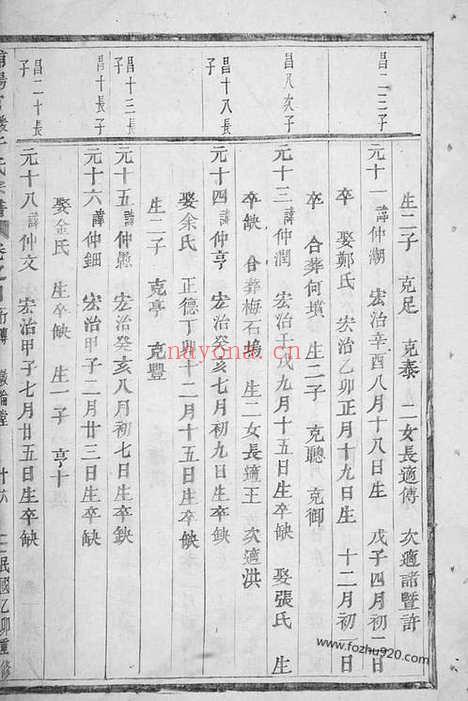 昌二三子
昌八次子
昌十八長子
昌十三長子
昌十長子
昌二十長子
生二子 克足 克泰 二女長適傅 次適諸暨許
元十一諱仲潮 宏治辛酉八月十八日生 戊子四月初二日
卒 娶鄭氏 宏治乙卯正月十九日生 十二月初一日
卒 合葬何墳 生二子 克聰 克御
元十三諱仲潤 宏治壬戌九月十五日生卒缺 娶張氏 生
卒缺 合葬梅石塢 生二女長適王 次適洪
元十四諱仲亨 宏治癸亥七月初七日生卒缺
娶余氏 正德丁卯十二月十五日生卒缺
生二子 克亭 克豐
元十五諱仲懸 宏治癸亥八月初七日生卒缺
元十六諱仲鈿 宏治甲子二月廿三日生卒缺
娶金氏 生卒缺 生一子 亨十
元十八諱仲文 宏治甲子七月廿五日生卒缺
民國乙卯重修
nayona.cn
www.fozhu920.com